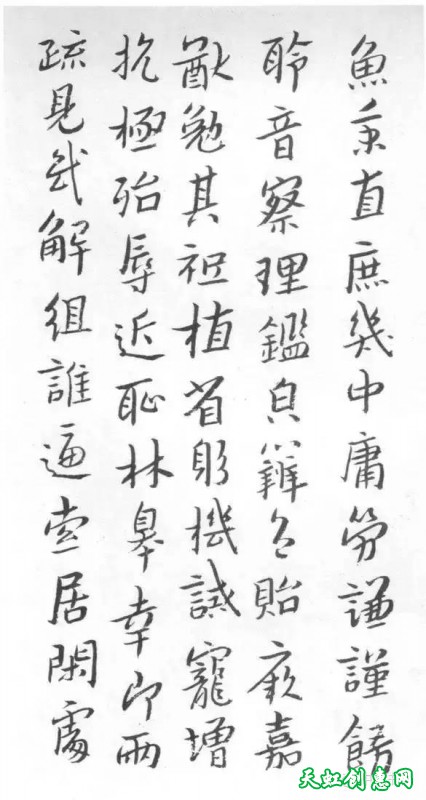 魚秉直庶幾中庸勞謙謹飭
聆音察理鑑皃辨色貽厥嘉
猷勉其祗植省躬機誡寵增
抗極殆辱近恥林皋幸即兩
疏見幾解組誰逼索居閑處
天虹创惠网